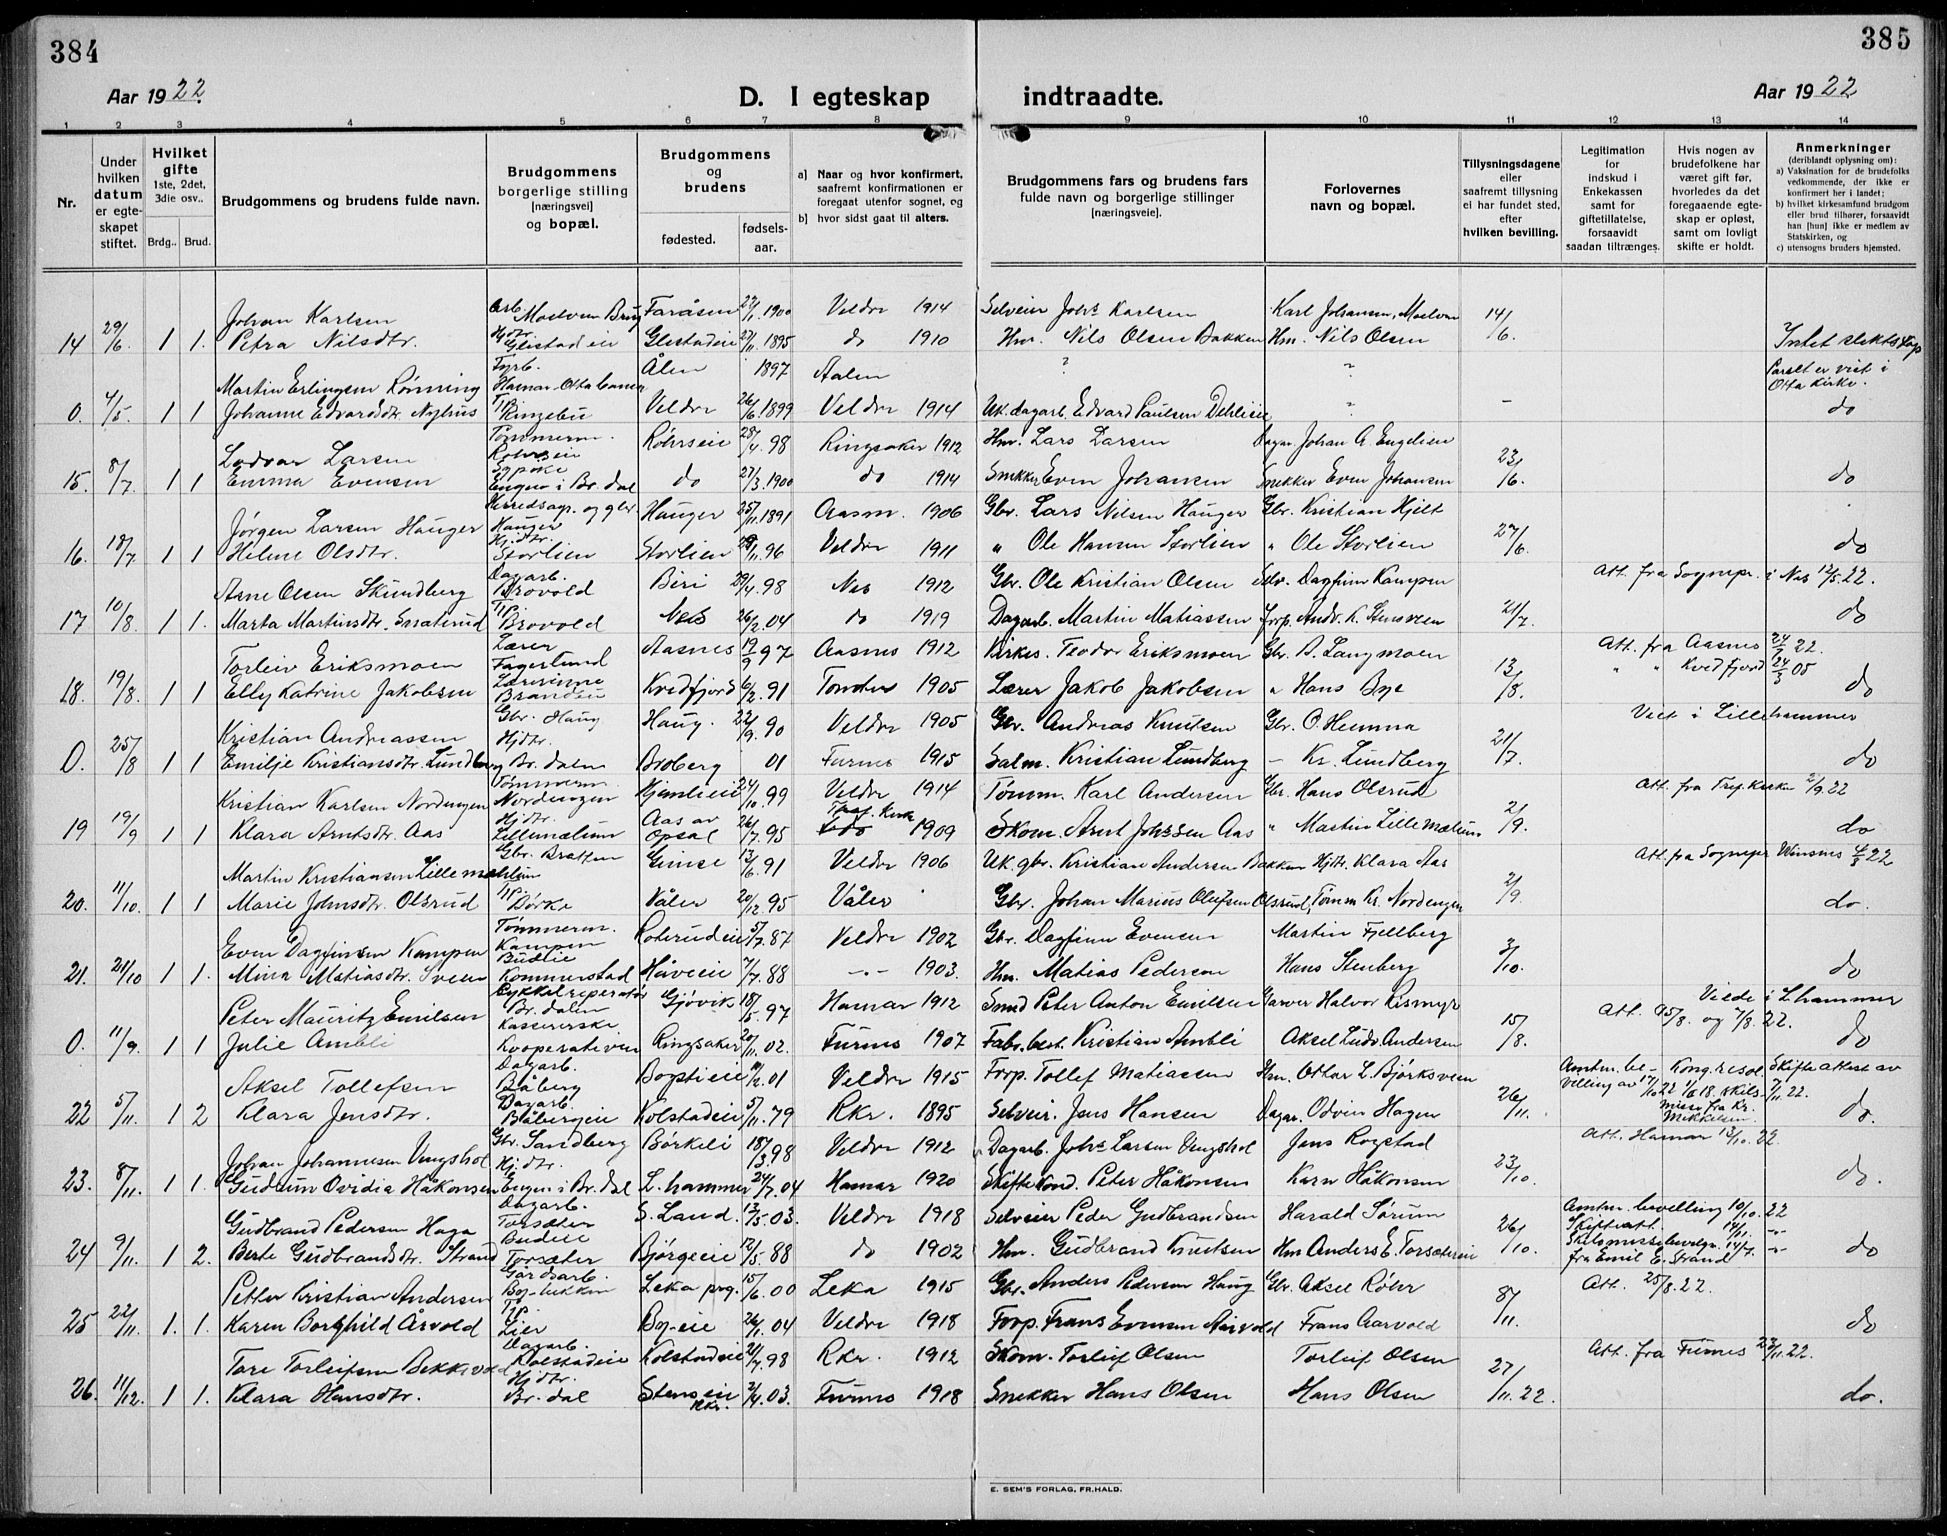 384
385
Aar 1922.
D. I egteskap
indtraadte.
Aar 1922
1 2 3 4 5 6 7 8 9 10 11 12 13 14
Nr.
Under hvilken datum er egteskapet stiftet.
Hvilket gifte 1ste, 2det, 3die osv..
Brdg.. Brud.
Brudgommens og brudens fulde navn.
Brudgommens borgerlige stilling [næringsvei] og bopæl.
Brudgommens og brudens
fødested.
fødselsaar.
a) Naar og hvor konfirmert, saafremt konfirmationen er foregaat utenfor sognet, og
b) hvor sidst gaat til alters.
Brudgommens fars og brudens fars fulde navn og borgerlige stillinger [næringsveie].
Forlovernes navn og bopæl.
Tillysningsdagene eller saafremt tillysning ei har fundet sted, efter hvilken bevilling.
Legitimation for indskud i Enkekassen samt for giftetillatelse, forsaavidt saadan tiltrænges.
Hvis nogen av brudefolkene har været gift før, hvorledes da det foregaaende egteskap er opløst, samt om lovligt skifte er holdt.
Anmerkninger (deriblandt oplysning om): a) Vaksination for de brudefolks vedkommende, der ikke er konfirmert her i landet; b) hvilket kirkesamfund brudgom eller brud tilhører, forsaavidt han [hun] ikke er medlem av Statskirken, og c) utensogns bruders hjemsted.
Johan Karlsen Arb. Moelven Brug Faråsen 1900 Veldre 1914 Selveier Johs Karlsen Karl Johansen, Moelven 14/6.
14 29/6 1 1. Petra Nilsdtr. Hjdtr. Glestadeie Glestadeie 27/11 1895 do 1910 Hm. Nils Olsen Bakken Hm. Nils Olsen Intet slektskap
Martin Erlingsen Rønning Fyrb. Hamar-Ottabanen Ålen 1897 Aalen ? Paret er viet i Otta kirke.
0. 4/5 1 1 Johanne Edvardsdtr. Nyhus Tp. Ringebu Veldre 26/6 1899 Veldre 1914 Uk. dagarb. Edvard Paulsen Dehlieie ? - do
Ludvar Larsen Tømmerm. Rohrseie Röhrseie 28/4 98 Ringsaker 1912 Hm. Lars Larsen Dagar. Johan A. Engelien 23/6.
15. 8/7 1 1 Emma Evensen Sypike Engen i Br. dal do 27/3 1900 do 1914 Snekker Even Johansen Snekker Even Johansen do
Jørgen Larsen Hauger Herredsagr. og gbr. Hauger Hauger 25/11 1891 Aasm. 1906 Gbr. Lars Nilsen Hauger Gbr. Kristian Hjelt 27/6.
16. 18/7. 1 1 Helene Olsdtr. Hjdtr. Storlien Storlien 96 Veldre 1911 " Ole Hansen Storlien " Ole Storlien do
Arne Olsen Skundberg Dagarb. Brovold Biri 29/4. 98 Nes 1912 Gbr. Ole Kristian Olsen Selv. Dagfinn Kampen Att. fra Sognepr. i Nes 12/5. 22.
17 10/8. 1 1. Marta Martinsdtr. Smaterud Tp. Brovold Nes 26/2. 04 do 1919 Dagarb. Martin Matiassen Forp. Andr. K. Stensveen 21/7. do
Torleiv Eriksmoen Lærer Fagerlund Aasnes 19/9 97 Aasnes 1912 Kirkes. Teodor Eriksmoen Gbr. A. Langmoen 13/8. Att. fra Aasnes 24/7 22.
18. 19/8. 1 1 Elly Katrine Jakobsen Lærerinne Branden Kvedfjord 6/2. 91 Tondes 1905 Lærer Jakob Jakobsen " Hans Bye " " Kvedfjord 24/5 05 do
Kristian Andreassen Gbr. Haug Haug. 22/9. 90 Veldre 1905 Gbr. Andreas Knutsen Gbr. O. Hemma Viet i Lillehammer
0. 25/8 1 1 Emilje Kristiansdtr. Lundberg Hjdtr. Br. dalen Broberg 01 Furnes 1915 Salm. Kristian Lundberg - Kr. Lundberg 21/7. do
Kristian Karlsen Nordengen Tømmerm. Nordengen Hjemlieie 24/10. 99 Veldre 1914 Tømm. Karl Andersen Gbr. Hans Olsrud Att. fra Tref. Kirke 2/9. 22
19 19/9 1 1 Klara Arntsdtr. Aas Hjdtr. Lillemælum Aas av Opsal 26/7. 95 Tref. Kirke 1909 Skom. Arnt Johssen Aas " Martin Lillemælum 2/9. do
Martin Kristiansen Lillemæhlum Gbr. Bratten Gimse 13/6. 91 Veldre 1906 Uk. gbr. Kristian Andersen Bakken Hjdtr. Klara Aas Att. fra Sognepr. Winsnes 22
20. 11/10. 1 1 Marie Johnsdtr. Olsrud Tp. Børke Våler 20/12. 95 Våler Gbr. Johan Marius Olufsen Olsrud, Tømm Kr. Nordengen 2/9. do.
Even Dagfinsen Kampen Tømmerm. Kampen Rohrudeie 5/7. 87 Veldre 1902 Gbr. Dagfinn Evensen Martin Fjellberg 3/10.
21. 21/10 1 1. Mina Matiasdtr. Sveen Budeie Kommerstad Håveie 7/7. 88 -.- 1903. Hm. Matias Pederson Hans Stenberg do
Peter Mauritz Emilsen Cykkelreperatør Br. dalen Gjøvik 18/5. 97 Hamar 1912 Smed Peter Anton Emilsen Garver Halvor Rismyr Viede i L.hammer
Att. 25/8. og 7/8. 22.
0. 11/9. 1 1 Julie Ambli Kassererske Kooperativen Ringsaker 20/11. 02. Furnes 1907 Fabr.best. Kristian Ambli Aksel Ludv. Andersen 15/8. do
Aksel Tollefsen Dagarb. Båberg Bogstieie 01 Veldre 1915 Forp. Tollef Matiassen Hm. Ottar L. Bjørksveen Amtm. bevilling av 17/10 22 Kong. resol. 1/6 18. skilsmisse fra Kr. Mikkelsen. Skifteattest av 7/11. 22.
22 5/11. 1 2 Klara Jensdtr. Dagarb. Båbergeie Kolstadeie 5/11. 79 Rkr. 1895 Selveier. Jens Hansen Dagar. Odvin Hagen 26/11. do.
Johan Johannesen Vengshol Gbr. Sandberg Börkeli 18/3. 98 Veldre 1912 Dagarb. Johs Larsen Vengshol Jens Rogstad Att. Hamar 13/10. 22
23. 8/11. 1 1. Gudrun Ovidia Håkonsen Hjdtr. Engen i Br. dal L. hammer 24/7. 04 Hamar 1920 Skiftekond. Peter Håkonsen Karn Håkonsen 23/10. do.
Gudbrand Pedersen Haga Dagarb. Torsæter S. Land. 13/5. 03. Veldre 1918 Selveier Peder Gudbrandsen Harald Sørum Amtm. bevilling 10/10. 22
Skifteatt. 14/11. -"-
24 9/11. 1 2. Berte Gudbrandsdtr. Strand Budeie Torsæter Bjørgeeie 12/5. 88 do 1902 Hm. Gudbrand Knutsen Hm Anders E. Torsæterie 26/10. Skilsmissebevilgn. 14/7. -"- fra Emil E. Strand do
Petter Kristian Andersen Gårdsarb. By-bekken Leka prg. 15/6. 00 Leka 1915 Gbr. Anders Pedersen Haug Gbr. Aksel Röhr Att. 25/8. 22.
25 22/11. 1. 1. Karen Borghild Årvold Tp. Lier By-eie 26/1. 04 Veldre 1918 Forp. Frans Evensen Aarvold Frans Aarvold 8/11. do
Tore Torleifsen Bekkevold Dagarb. Kolstadeie Kolstadeie 21/7. 98 Rkr. 1912 Skom. Torleif Olsen Torleif Olsen Att. fra Furnes 23/11. 22.
26. 11/12. 1 1 Klara Hansdtr. Hjdtr. Br. dal Stenseie Rkr. 2/4. 03. Furnes 1918 Snekker Hans Olsen Hans Olsen 27/11. 22. do.
E. SEM'S FORLAG, FR.HALD.